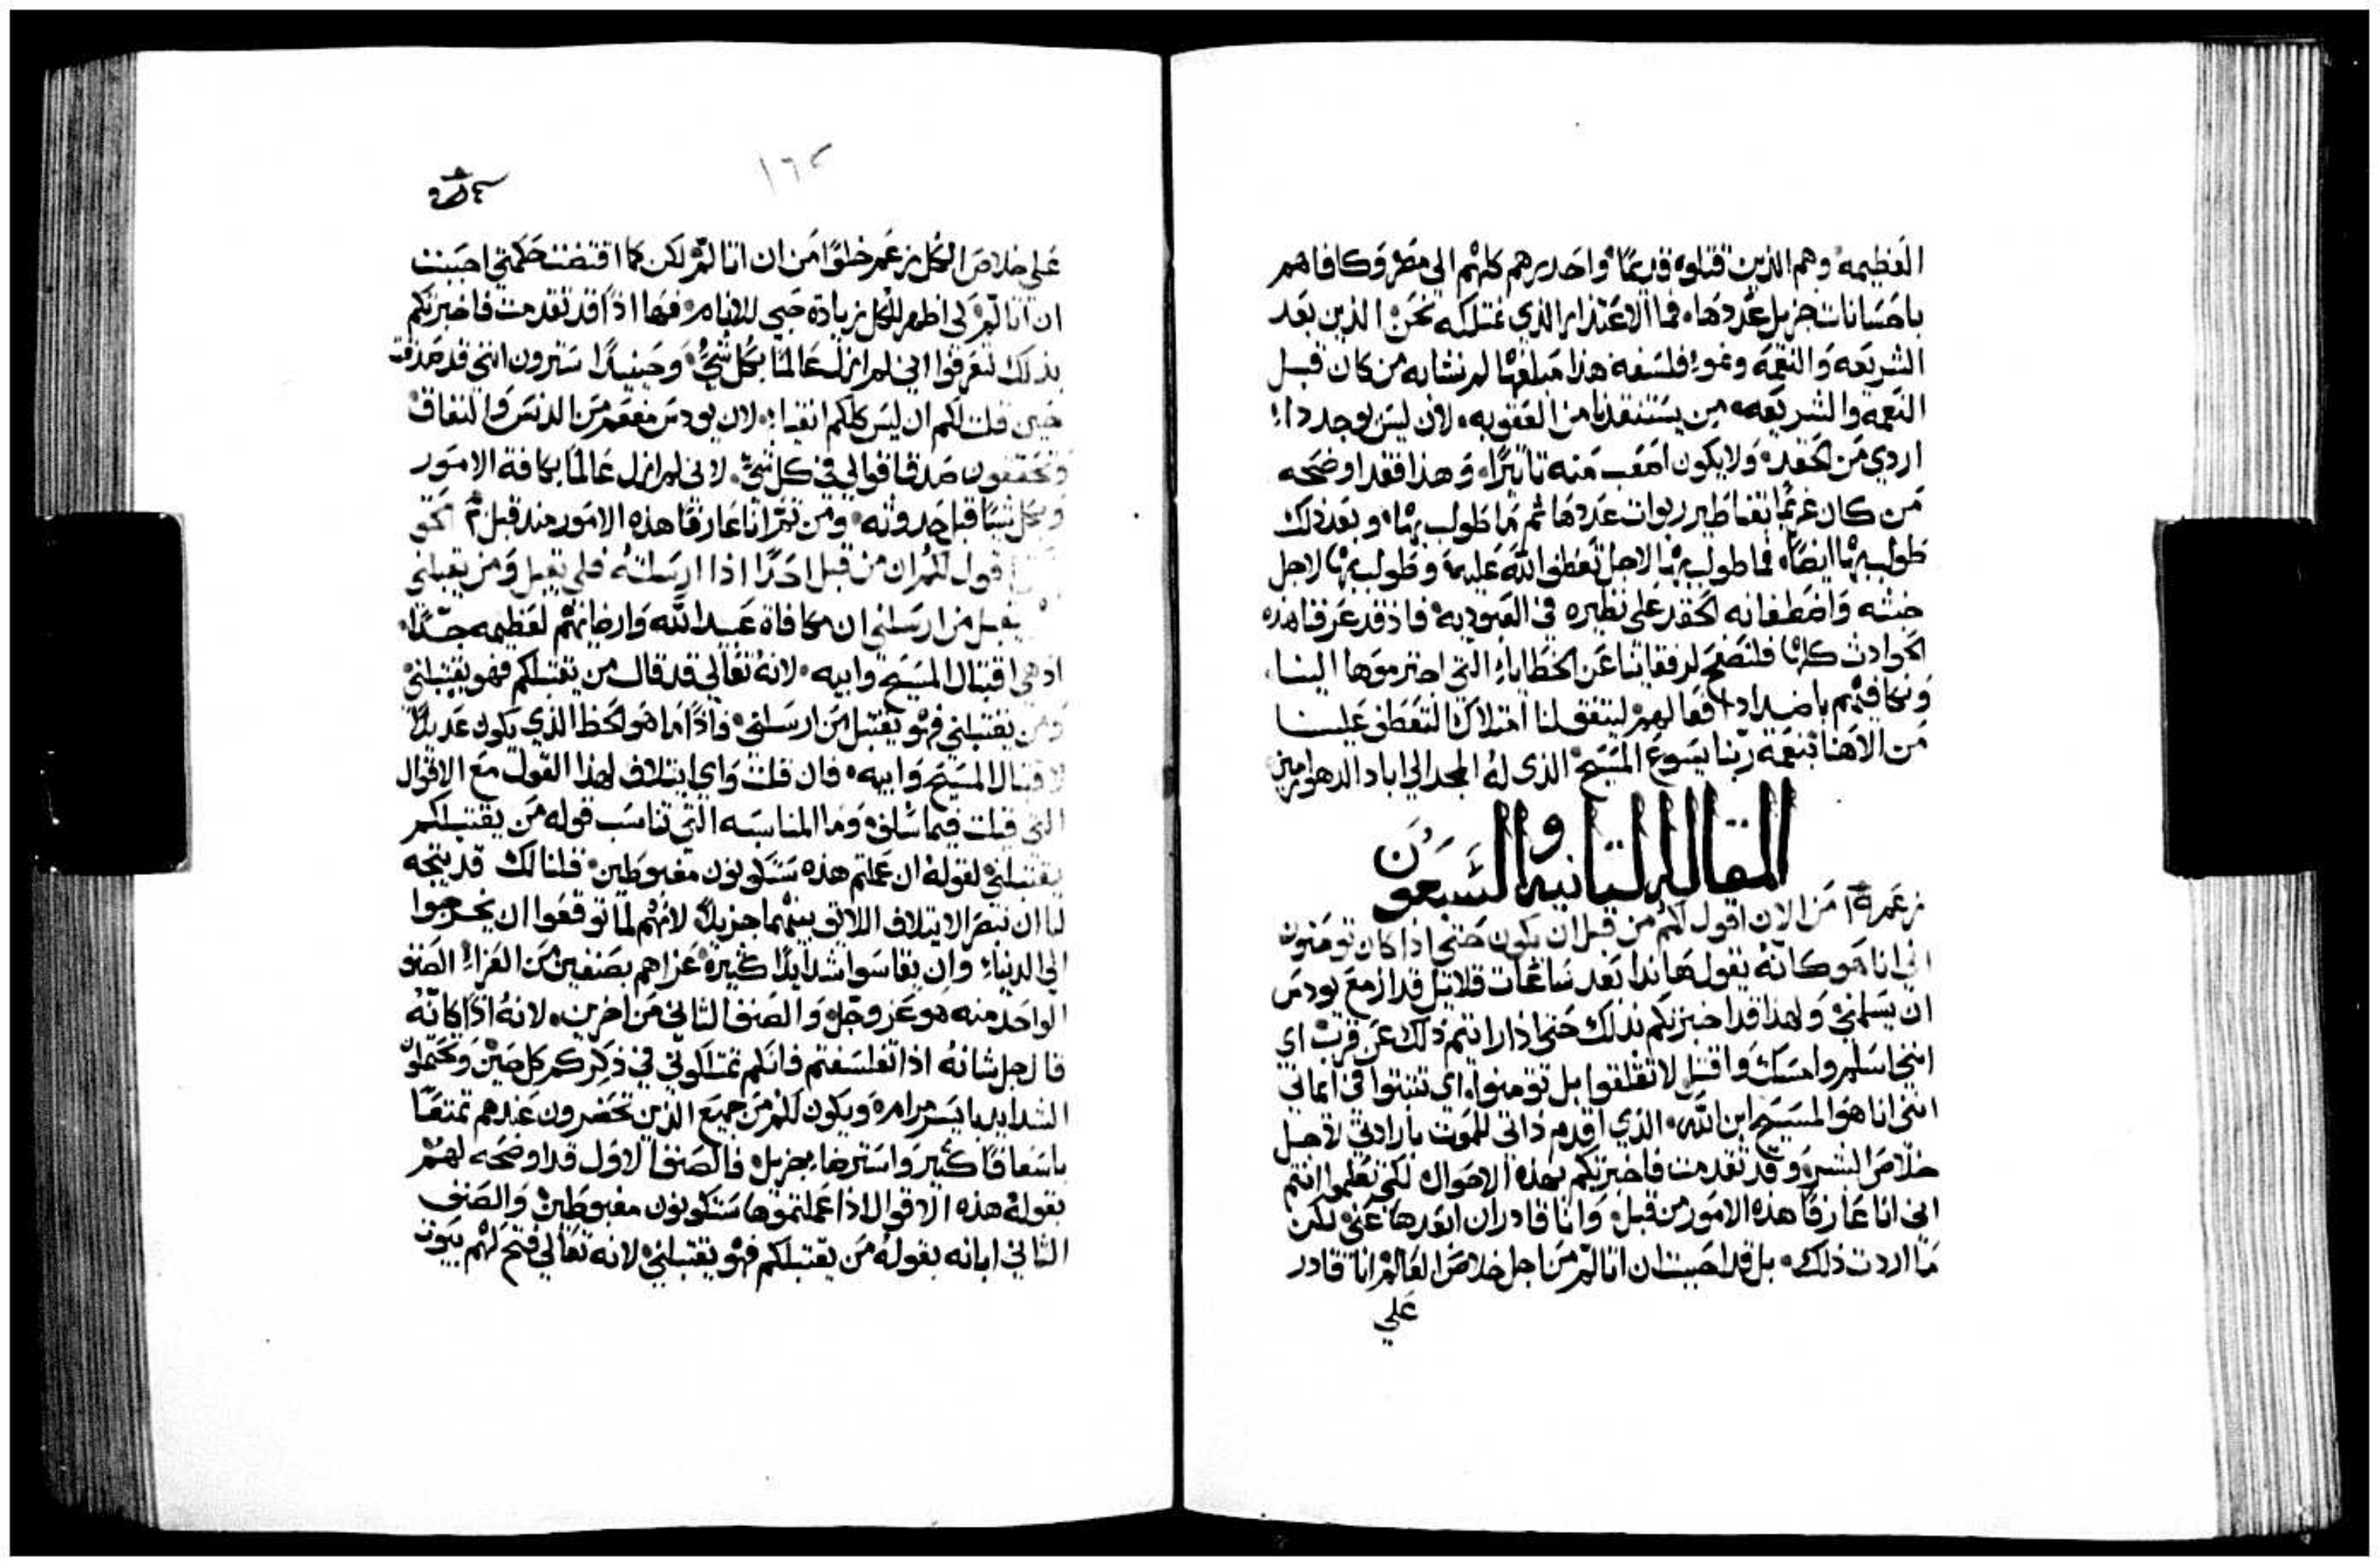 العظيمه وهم الذين قتلوه قديمًا واحدرهم كلهم الي مصر وكافاهم
باحسانات جزيل عددها فما الاعتذار الذي نمتلكه نحن الذين بعد
الشريعه والنعمة ونمو فلسفه هذا مبلغها لم نشابه من كان قبل
النعمة والشريعه من يستنقذنا من العقوبه لان ليس يوجد داء
اردي من الحقد ولا يكون اصعب منه تاثيرًا وهذا فقد اوضحه
من كان غريمًا بقناطير ربوات عددها ثم ما طولب بها وبعد ذلك
طولب بها ايضًا فما طولب بها لاجل تعطف الله عليه وطولب بها لاجل
خبثه واضطغانه الحقد علي نظيره في العبوديه فاذ قد عرفنا هذه
الحوادث كلها فلنصفح لرفقائنا عن الخطاياء التي اجترموها الينا
ونكافيهم باضداد افعالهم ليتفق لنا امتلاك التعطف علينا
من الاهنا بنعمة ربنا يسوع المسيح الذي له المجد الي اباد الدهور امين
المقالة الثانيه والسبعون
من الان اقول لكم من قبل ان يكون حتي اذا كان تومنون
اني انا هو كانه يقول هاندا بعد ساعات قلائل قد ازمع يودس
ان يسلمني ولهذا قد اخبرتكم بذلك حتي اذا رايتم ذلك عن قرب اي
انني اسلم وامسك واقتل لا تقلقوا بل تومنوا اي تثبتوا في ايماني
انني انا هو المسيح ابن الله الذي اقدم ذاتي للموت بارادتي لاجل
خلاص البشر وقد تقدمت فاخبرتكم بهذه الاحوال لكي تعلموا انتم
اني انا عارفًا هذه الامور من قبل وانا قادر ان ابعدها عني لكن
ما اردت ذلك بل قد احببت ان اتالم من اجل خلاص العالم انا قادر
علي
١٦٢
علي خلاص الكل من غير ان اتالم لكن كما اقتضت حكمتي احببت
ان اتالم لكي اظهر للكل زيادة حبي للانام فها اذًا قد تقدمت فاخبرتكم
بذلك لتعرفوا اني لم ازل عالمًا بكل شي وحينيذًا سترون انني قد صدقت
حين قلت لكم ان ليس كلكم انقياء لان يودس مفعم من الدنس والنفاق
وتحققون صدق اقوالي في كل شي لاني لم ازل عالمًا بكافة الامور
وبكل شيًا قبل حدوثه
اقول لكم ان من قبل احدًا اذا ارسلته فلي يقبل ومن يقبلني
يقبل من ارسلني ان مكافاة عبيد الله وارضائهم لعظيمه جدًا
اذ هي اقتبال المسيح وابيه لانه تعالي قد قال من يقتبلكم فهو يقتبلني
ومن يقتبلني فهو يقتبل من ارسلني فاذًا ما هو الحظ الذي يكون عديلاً
لاقتبال المسيح وابيه فان قلت واي ايتلاف لهذا القول مع الاقوال
التي قيلت فيما سلف وما المناسبه التي تناسب قوله من يقتبلكم
يقتبلني لقوله ان عملتم هذه ستكونون مغبوطين قلنا لك قد يتجه
لنا ان نبصر الايتلاف اللاتق بينهما جزيلاً لانهم لما توقعوا ان يخرجوا
الي الدنياء وان يقاسوا شدايدًا كثيرة عزاهم بصنفين من العزاء الصنف
الواحد منه هو عز وجل والصنف الثاني من اخرين لانه اذًا كانه
قال جل شانه اذا تفلسفتم فانكم تمتلكوني في ذكركم كل حين وتحتملون
الشدايد بايسر مرامه ويكون لكم من جميع الذين تحضرون عندهم تمتعًا
باسعافًا كثير واسترضاء جزيل فالصنف الاول قد اوضحه لهم
بقوله هذه الاقوال اذا عملتموها ستكونون مغبوطين والصنف
الثاني ابانه بقوله من يقتبلكم فهو يقتبلني لانه تعالي فتح لهم بيوت